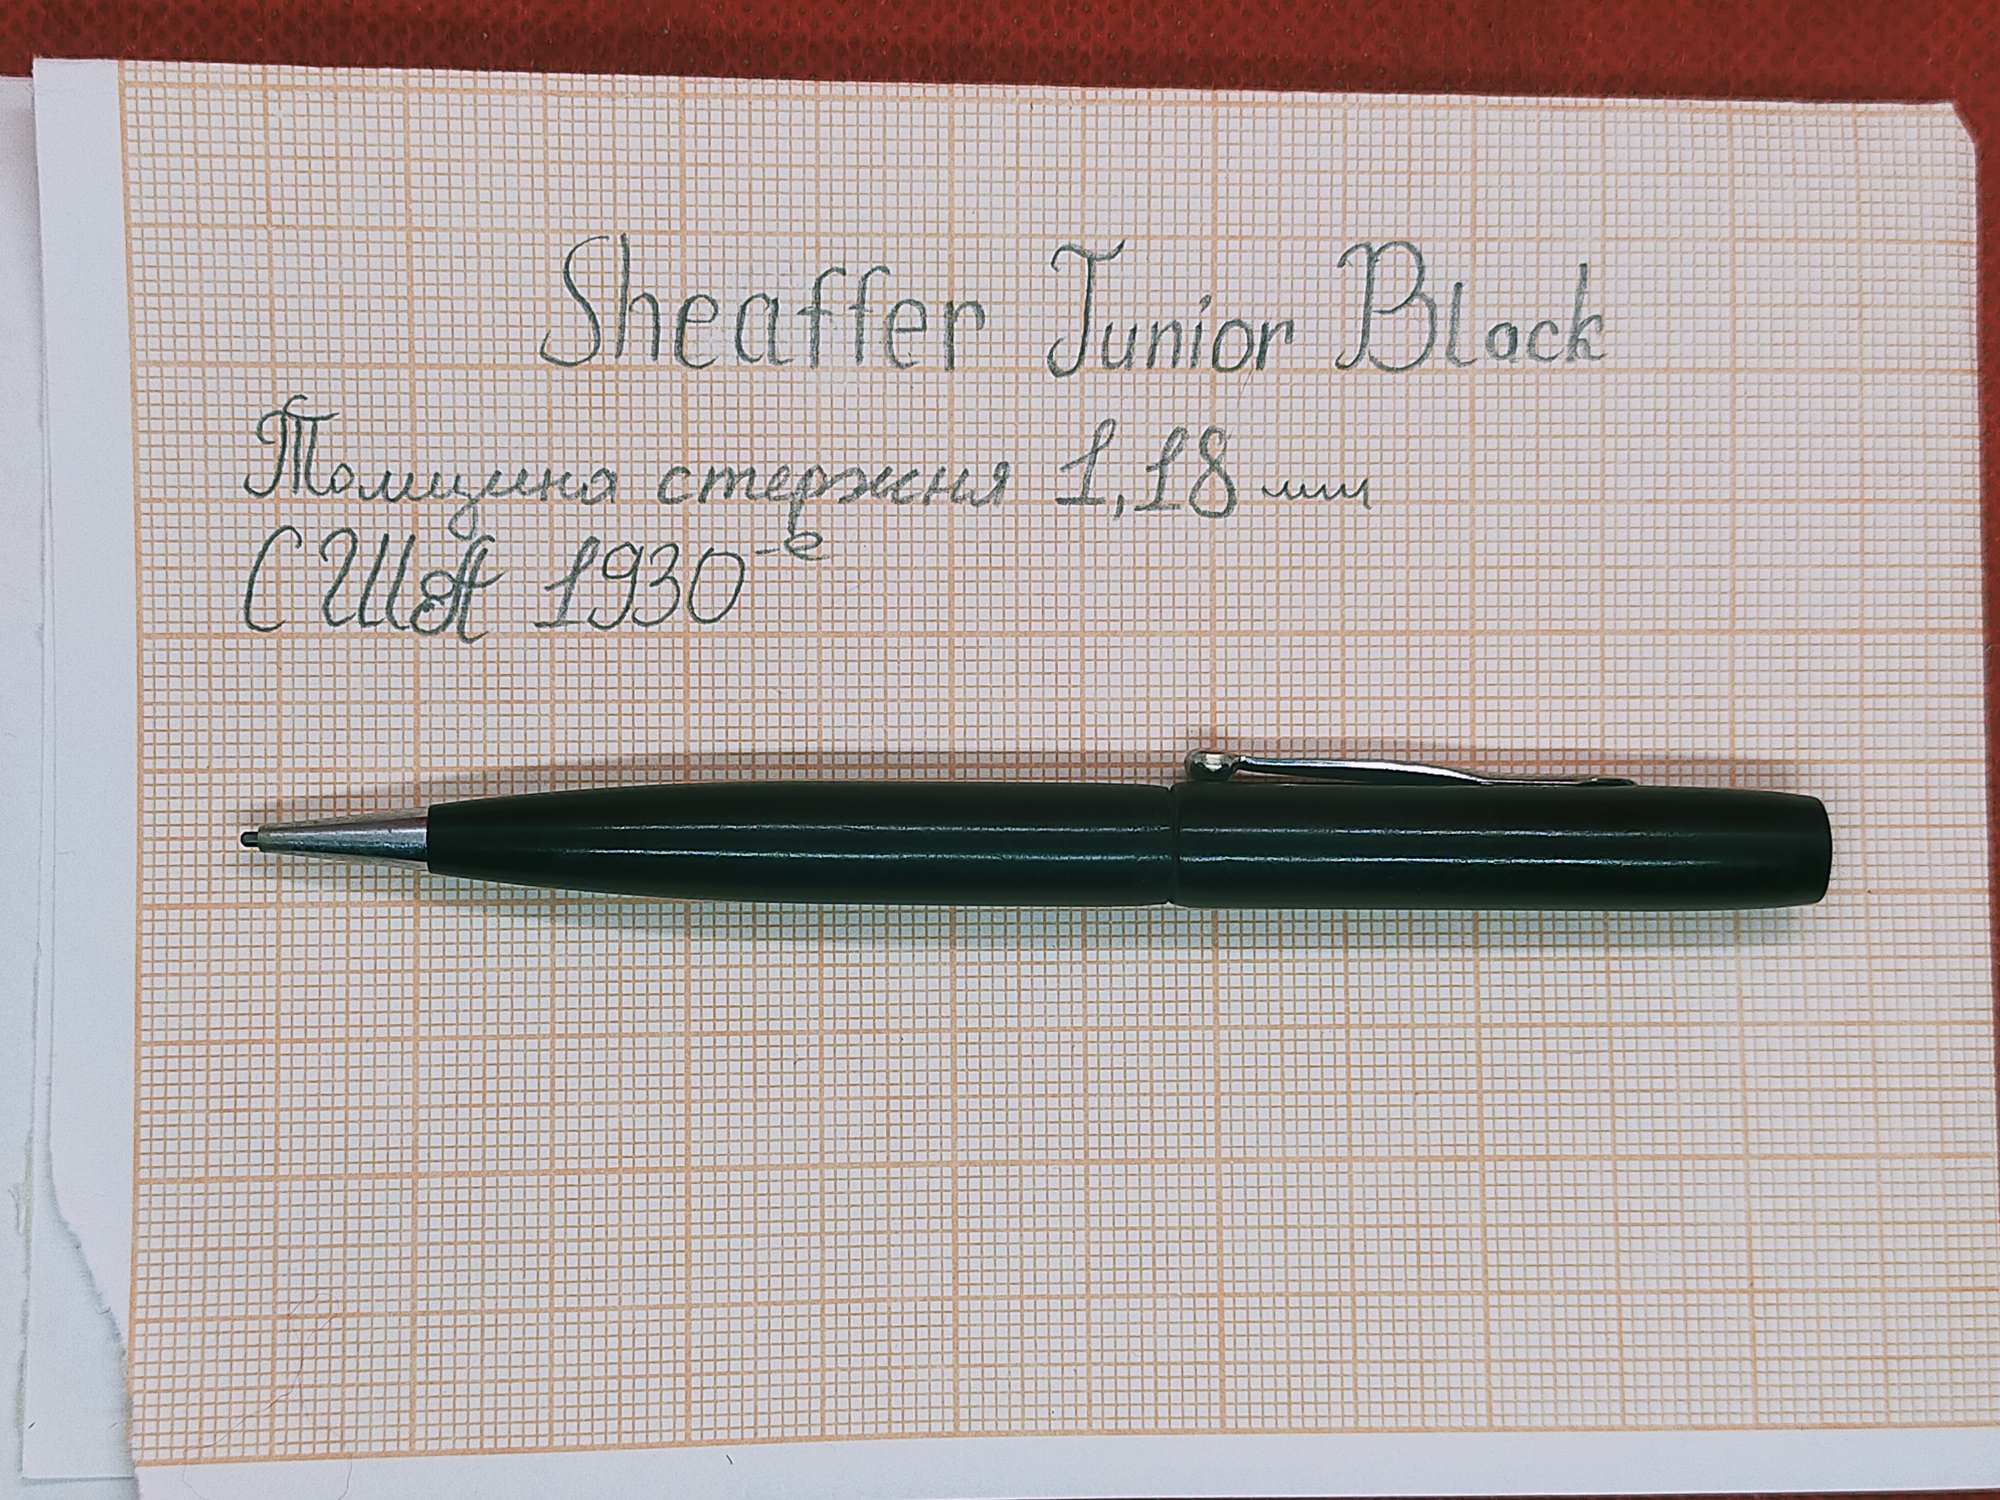 Sheaffer Junior Black
Толщина стержня 1,18 мм
США 1930-е